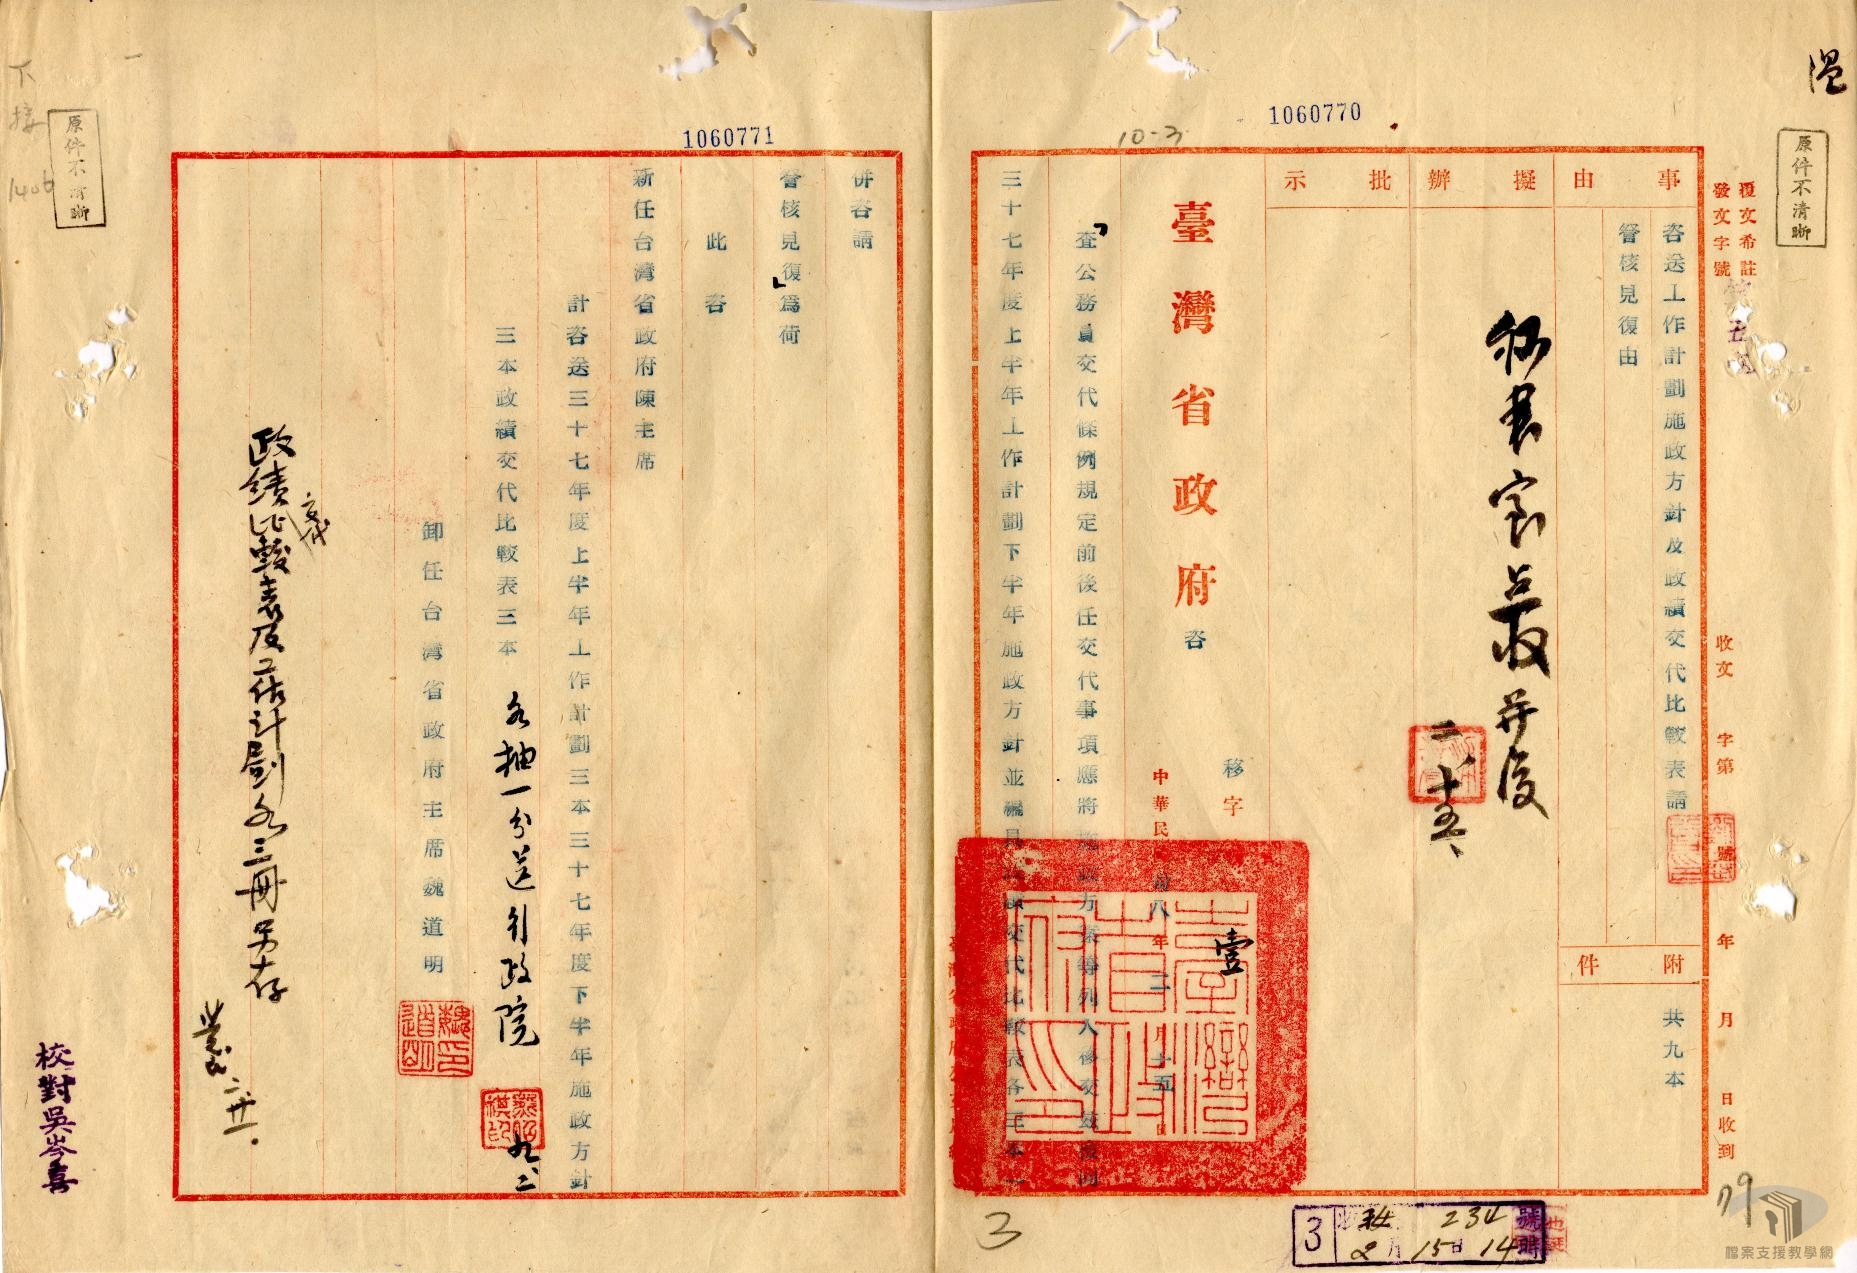 溫
原件不清晰
覆文希註
發文字號
收文 字第 號
年 月 日收到
事由
咨送工作計劃施政方針及政績交代比較表請
詧核見復由
附件
共九本
擬辦
批示
1060770
10-3
臺灣省政府
咨
移字
壹
中華民
八年二月十五日
「查公務員交代條例規定前後任交代事項應將施政方
等列入移交
三十七年度上半年工作計劃下半年施政方針並編具
交代比較表各三本一
臺灣省政府印
3
234號
2月15日14時
3
79
檔案支援教學網
1060771
併咨請
詧核見復」為荷
此咨
新任台灣省政府陳主席
計咨送三十七年度上半年工作計劃三本三十七年度下半年施政方針
三本政績交代比較表三本
各抽一份送行政院
九、二
卸任台灣省政府主席魏道明
魏道明印
政績交代比較表及工作計劃各三冊另存
二、廿一.
原件不清晰
下接
1406
校對吳岑喜